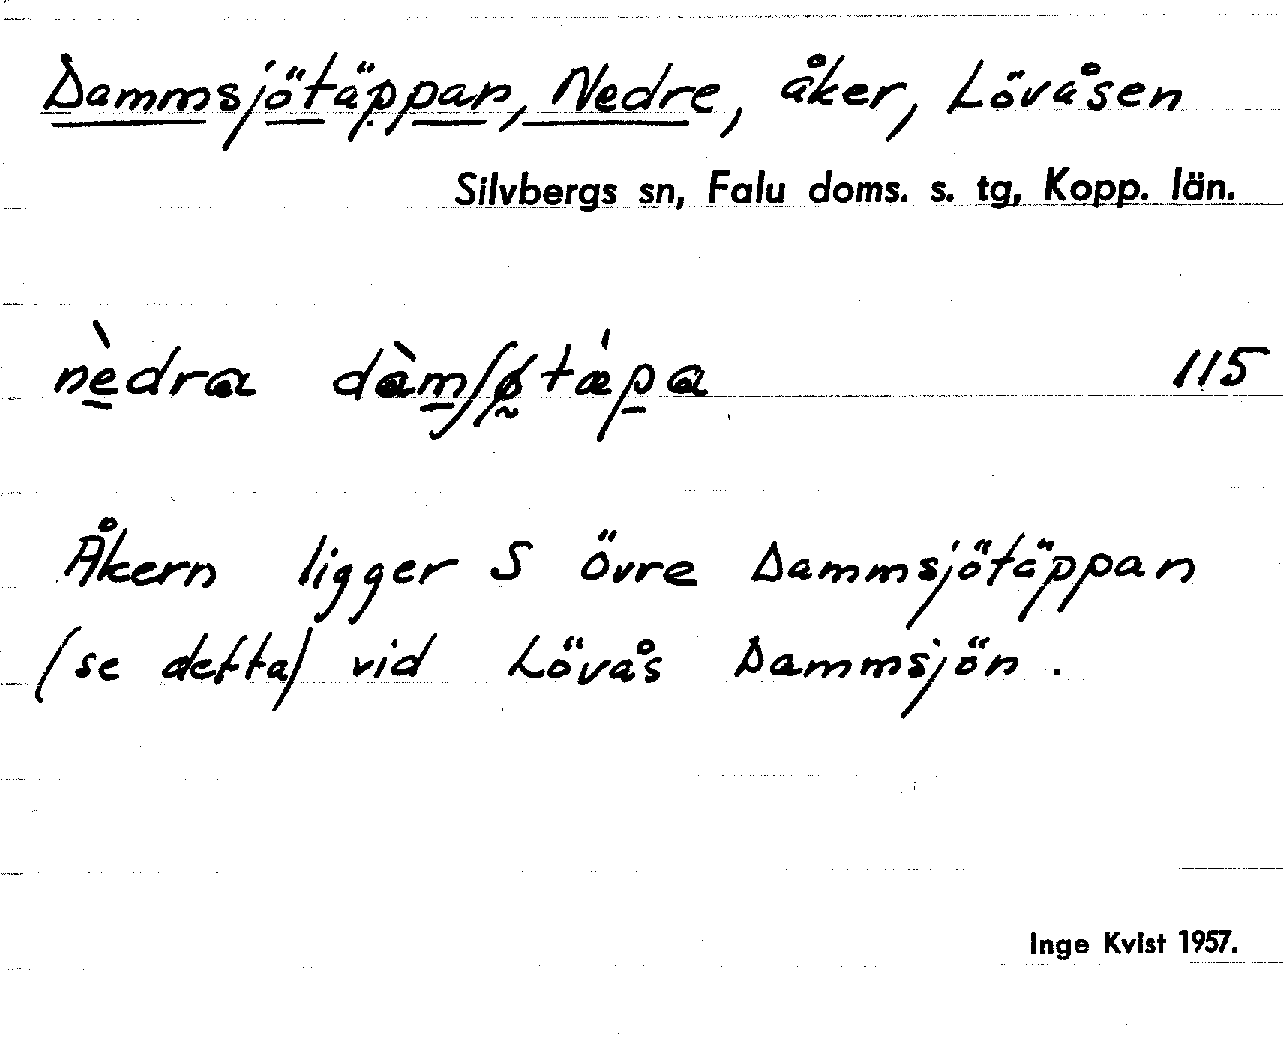 Dammsjötäppan, Nedre, åker, Lövåsen
Silvbergs sn, Falu doms. s. tg, Kopp. län.
nèdra dàmʃøtæ̀pa 115
Åkern ligger S Övre Dammsjötäppan
(se detta) vid Lövås Dammsjön.
Inge Kvist 1957.